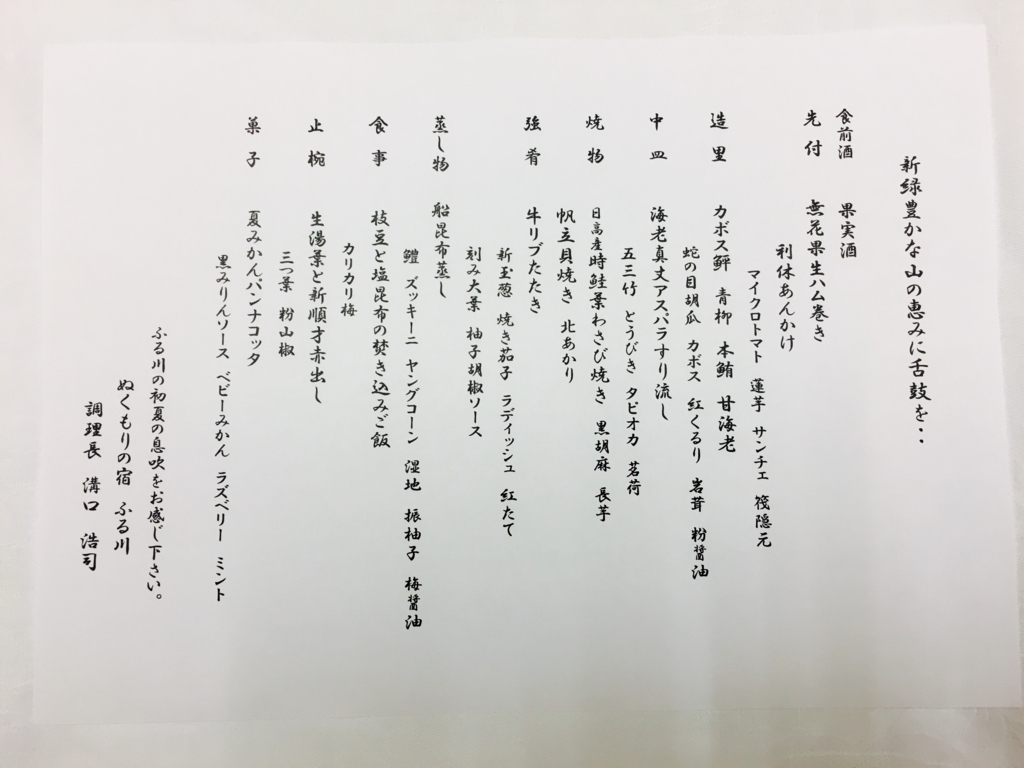 新緑豊かな山の恵みに舌鼓を・・
食前酒 果実酒
先付 無花果生ハム巻き
利休あんかけ
マイクロトマト 蓮芋 サンチェ 筏隠元
造里 カボス鮃 青柳 本鮪 甘海老
蛇の目胡瓜 カボス 紅くるり 岩茸 粉醤油
中皿 海老真丈アスパラすり流し
五三竹 とうびき タピオカ 茗荷
焼物 日高産時鮭葉わさび焼き 黒胡麻 長芋
帆立貝焼き 北あかり
強肴 牛リブたたき
新玉葱 焼き茄子 ラディッシュ 紅たて
刻み大葉 柚子胡椒ソース
蒸し物 船昆布蒸し
鱧 ズッキーニ ヤングコーン 湿地 振柚子 梅醤油
食事 枝豆と塩昆布の焚き込みご飯
カリカリ梅
止椀 生湯葉と新順才赤出し
三つ葉 粉山椒
菓子 夏みかんパンナコッタ
黒みりんソース ベビーみかん ラズベリー ミント
ふる川の初夏の息吹をお感じ下さい。
ぬくもりの宿 ふる川
調理長 溝口 浩司